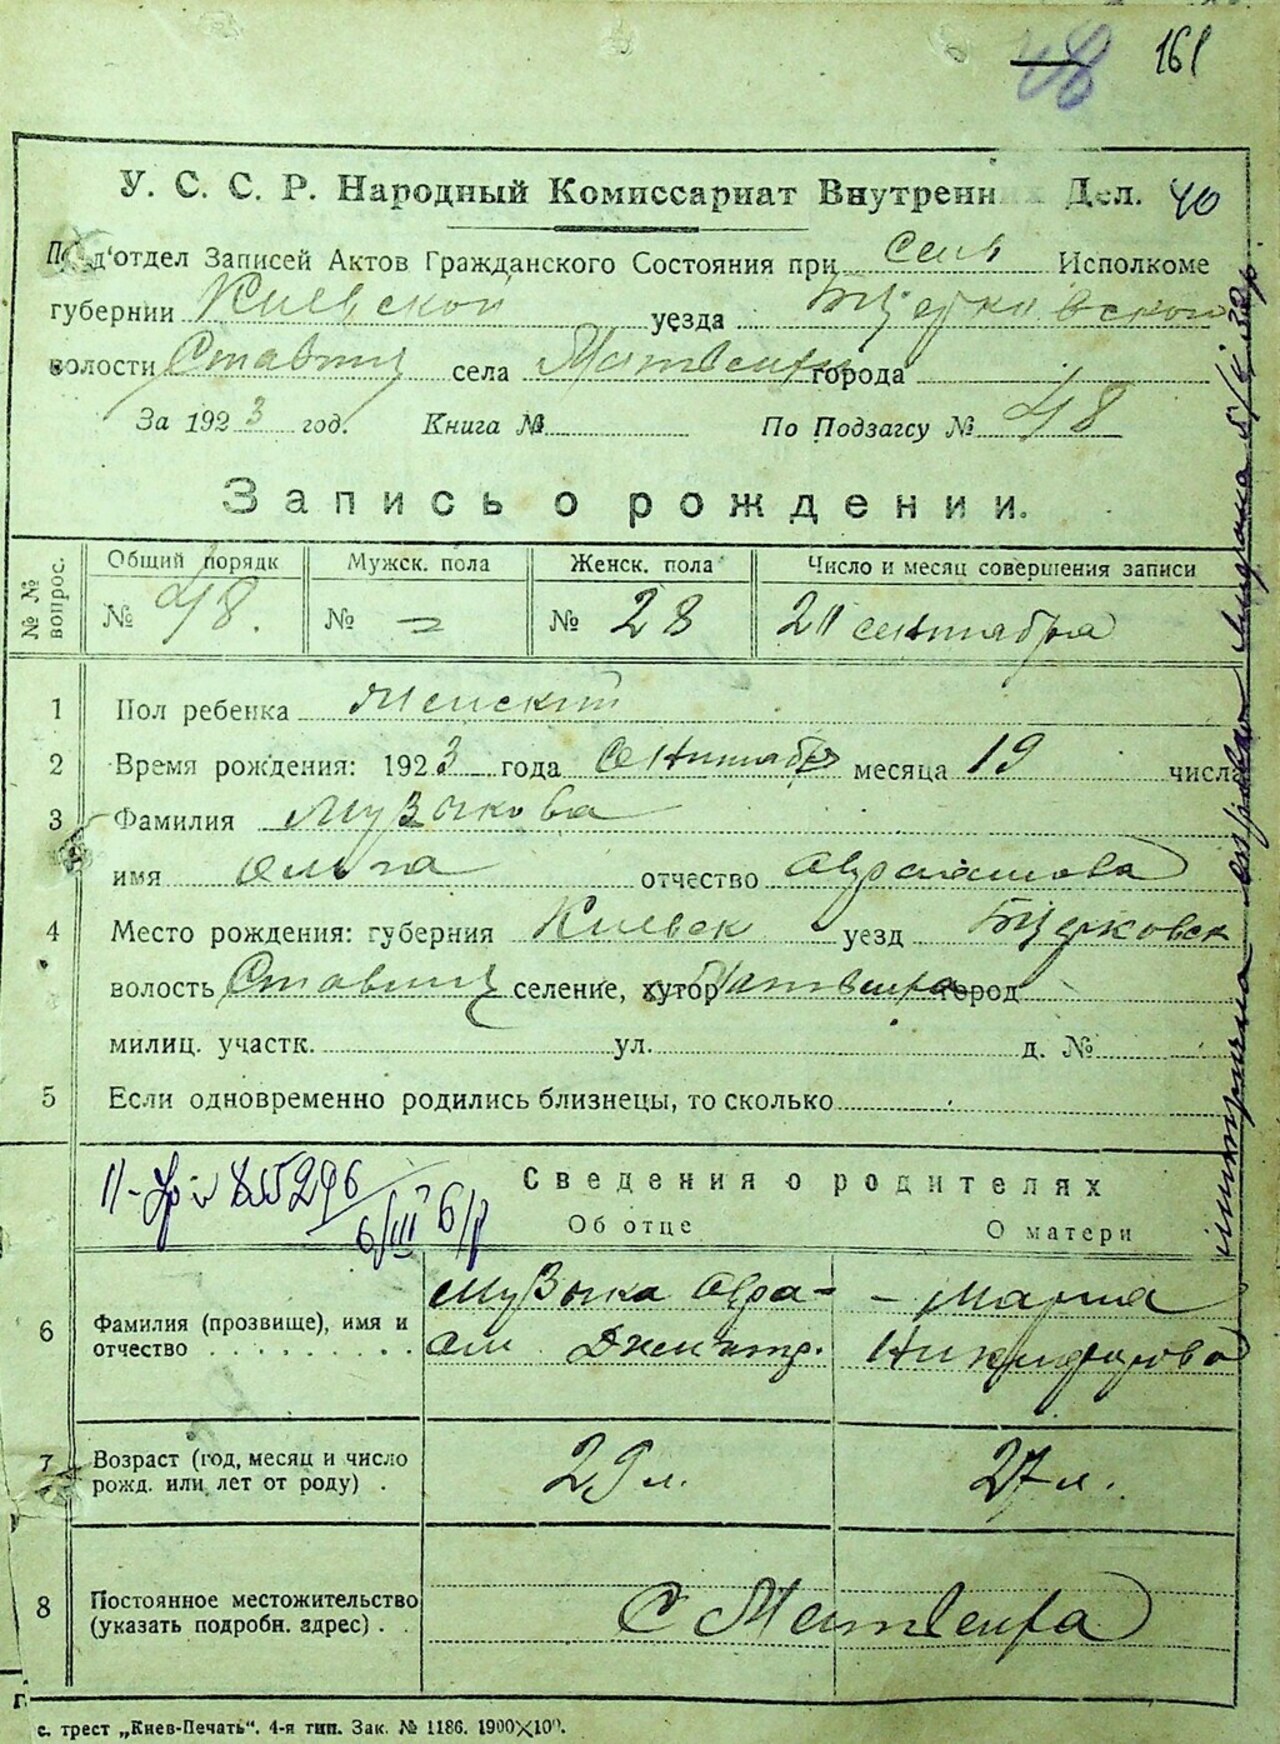 48 161
У. С. С. Р. Народный Комиссариат Внутренних Дел. 40
Под'отдел Записей Актов Гражданского Состояния при Сель Исполкоме
губернии Киевской уезда Бцерковской
волости Ставищ села Матвеиха города
За 1923 год. Книга № По Подзагсу № 48
Запись о рождении.
№ № вопрос.
Общий порядк Мужск. пола Женск. пола Число и месяц совершения записи
№ 48. № — № 28 21 сентября
1 Пол ребенка Женский
2 Время рождения: 1923 года Сентябр месяца 19 числа
3 Фамилия Музыкова
имя Ольга отчество Аврамова
4 Место рождения: губерния Киевск уезд Бцерковск
волость Ставищ селение, хутор Матвеиха город
милиц. участк. ул. д. №
5 Если одновременно родились близнецы, то сколько
Сведения о родителях
Об отце О матери
6 Фамилия (прозвище), имя и отчество
Музыка Авра- — Мария
ам Дмитр. Никифорова
7 Возраст (год, месяц и число рожд. или лет от роду) . 29 л. 27 л.
8 Постоянное местожительство (указать подробн. адрес) . . С Матвеиха
с. трест „Киев-Печать“. 4-я тип. Зак. № 1186. 1900×100.